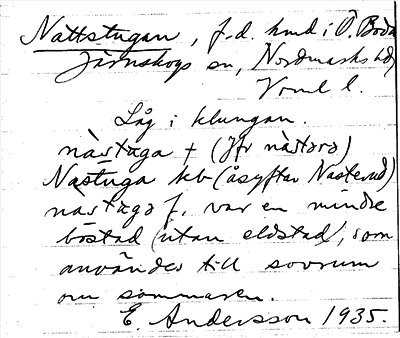 Nattstugan, f.d. hmd i Ö. Boda
Järnskogs sn, Nordmarks hd,
Vrml l.
Låg i klungan.
nàstuga + (Jfr nàstərə)
Nastuga hb (åsyftar Nasterud)
nastuga f. var en mindre
bostad (utan eldstad), som
användes till sovrum
om sommaren.
E. Andersson 1935.